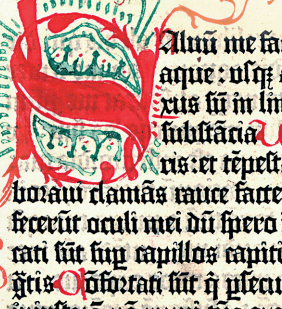 SAluū me fa
aque : vsqꝫ a
xus sū in lim
substācia V
ris : et tēpest
boraui clamās rauce facte
fecerūt oculi mei dū spero
cati sūt suꝑ capillos capiti
g̃tis Cōfortati sūt q̄ ꝑsecu